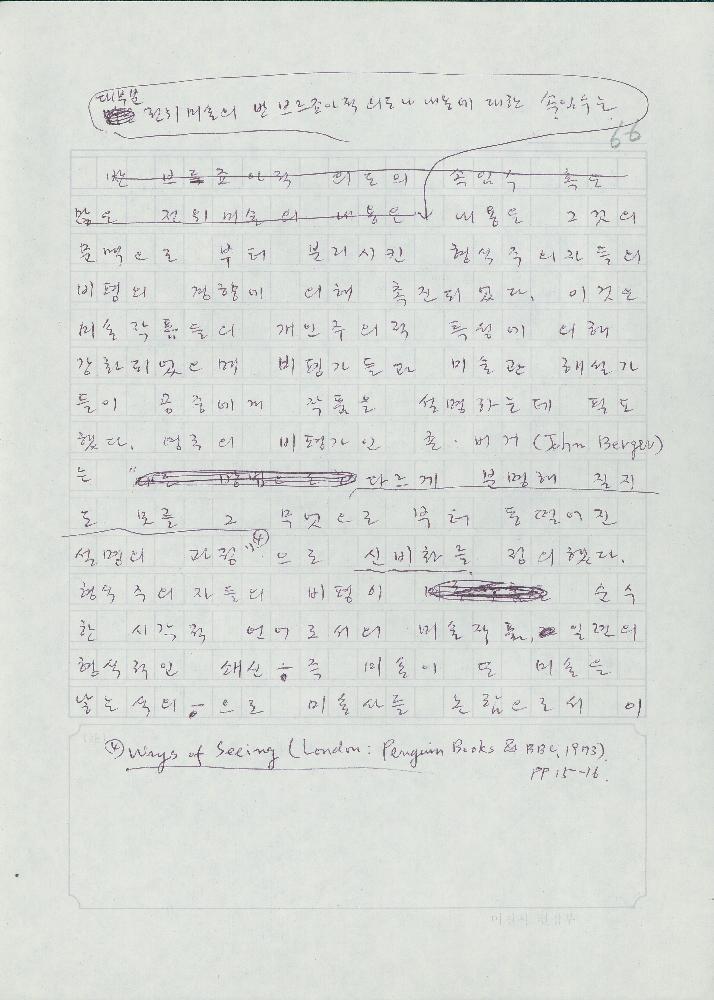 대부분
전위미술의 반 브르죠아적 의도나 내용에 대한 속임수는
66
반 브르죠아적 의도의 속임수 혹은
많은 전위미술의 내용은 내용을 그것의
문맥으로 부터 분리시킨 형식주의자들의
비평의 경향에 의해 촉진되었다. 이것은
미술작품들의 개인주의적 특성에 의해
강화되었으며 비평가들과 미술관 해설가
들이 공중에게 작품을 설명하는데 필요
했다. 영국의 비평가인 죤·버거 (John Berger)
는 " 다르게 분명해 질지
도 모를 그 무엇으로 부터 동떨어진
설명의 과정"④으로 신비화를 정의했다.
형식주의자들의 비평이 순수
한 시각적 언어로서의 미술작품, 일련의
형식적인 쇄신 즉 미술이 또 미술을
낳는 식의 으로 미술사를 논함으로서 이
④ Ways of Seeing (London: Penguin Books & BBC, 1973)
PP 15-16.